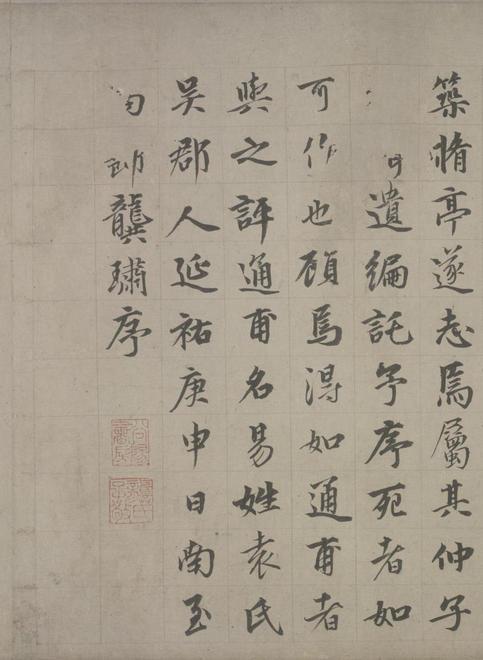 築亭遂志焉屬其仲子
遺編託予序死者如
可作也顧焉得如通甫者
與之評通甫名易姓袁氏
吳郡人延祐庚申日南至
龔璛序
龔氏子敬